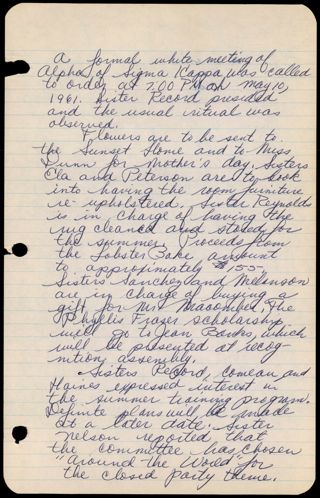 A formal white meeting of
Alpha of Sigma Kappa was called
to order at 7:00 P.M. on May 10,
1961. Sister Record presided
and the usual ritual was
observed.
Flowers are to be sent to
the Sunset Home and to Miss
Dunn for Mother's day. Sisters
and Peterson are to look
into having the room furniture
re-upholstered. Sister Reynolds
is in charge of having the
rug cleaned and stored for
the summer. Proceeds from
the Lobster Bake amount
to approfimately $155.
Sisters Sanchez and Melanson
are in charge of buying a
gift for Mrs Macomber. The
Phyllis Fraser scholarship
will go to Jean Banks, which
will be presented at recog-
nition assembly.
Sisters Record, Comeau and
Haines expressed interest in
the summer training program.
Definite plans will be made
at a later date. Sister
Nelson reported that
the committee has chosen
"Around the World" for
the closed party theme.